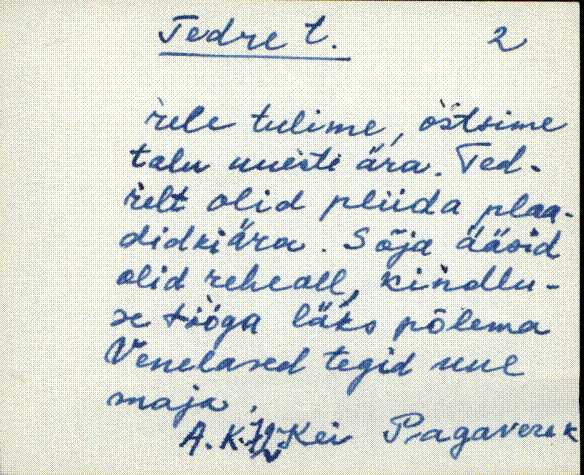 Tedre t. 2
rele tulime, ostsime
talu uuesti ära. Ted-
relt olid pliida plaa-
didki ära. Sõja ääsid
olid reheall, kindlu-
se tööga läks põlema
Venelased tegid uue
maja.
A. Kei Pagavere k